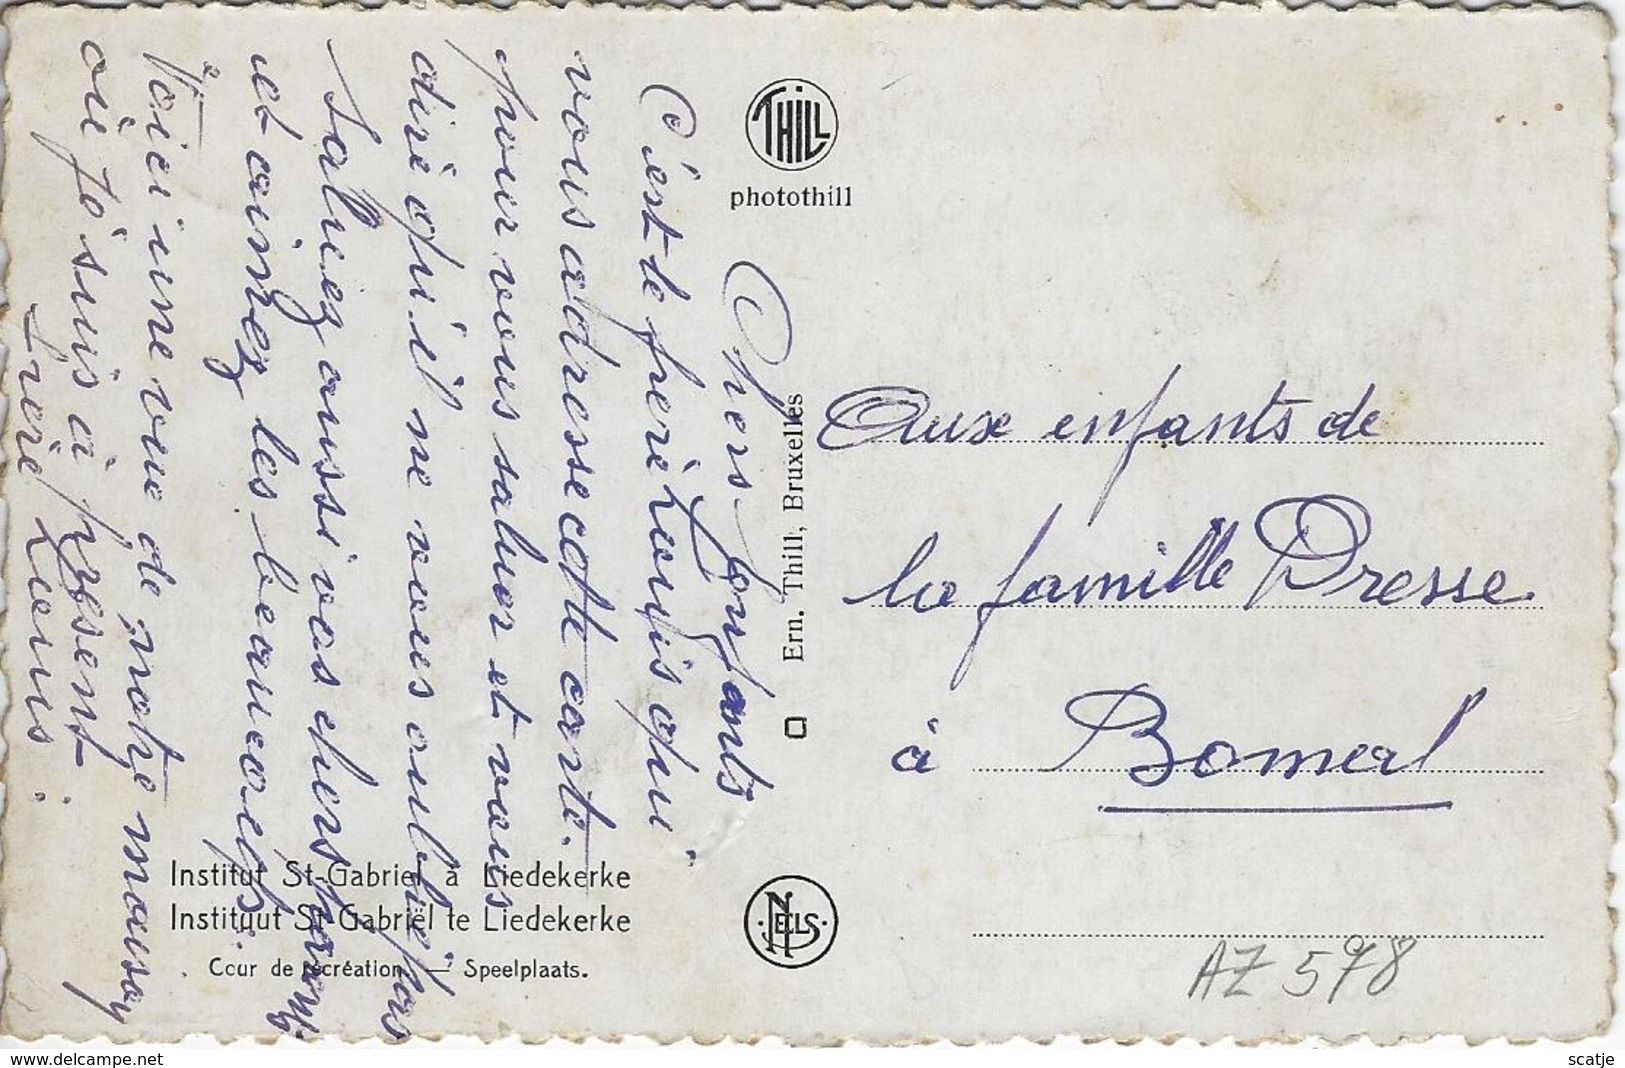 Chers Enfants
C'est le frère Louis qui
vous adresse cette carte.
pour vous saluer et vous
dire qu'il ne vous oublie pas
Saluez aussi vos chers parents
et aimez les beaucoup.
Voici une vue de notre maison
où je suis à présent
Frère Louis.
THILL
photothill
Ern. Thill, Bruxelles
NELS
Aux enfants de
la famille Dresse
à Bomal
Institut St-Gabriel à Liedekerke
Instituut St-Gabriël te Liedekerke
Cour de récréation. — Speelplaats.
AZ 578
www.delcampe.net
scatje